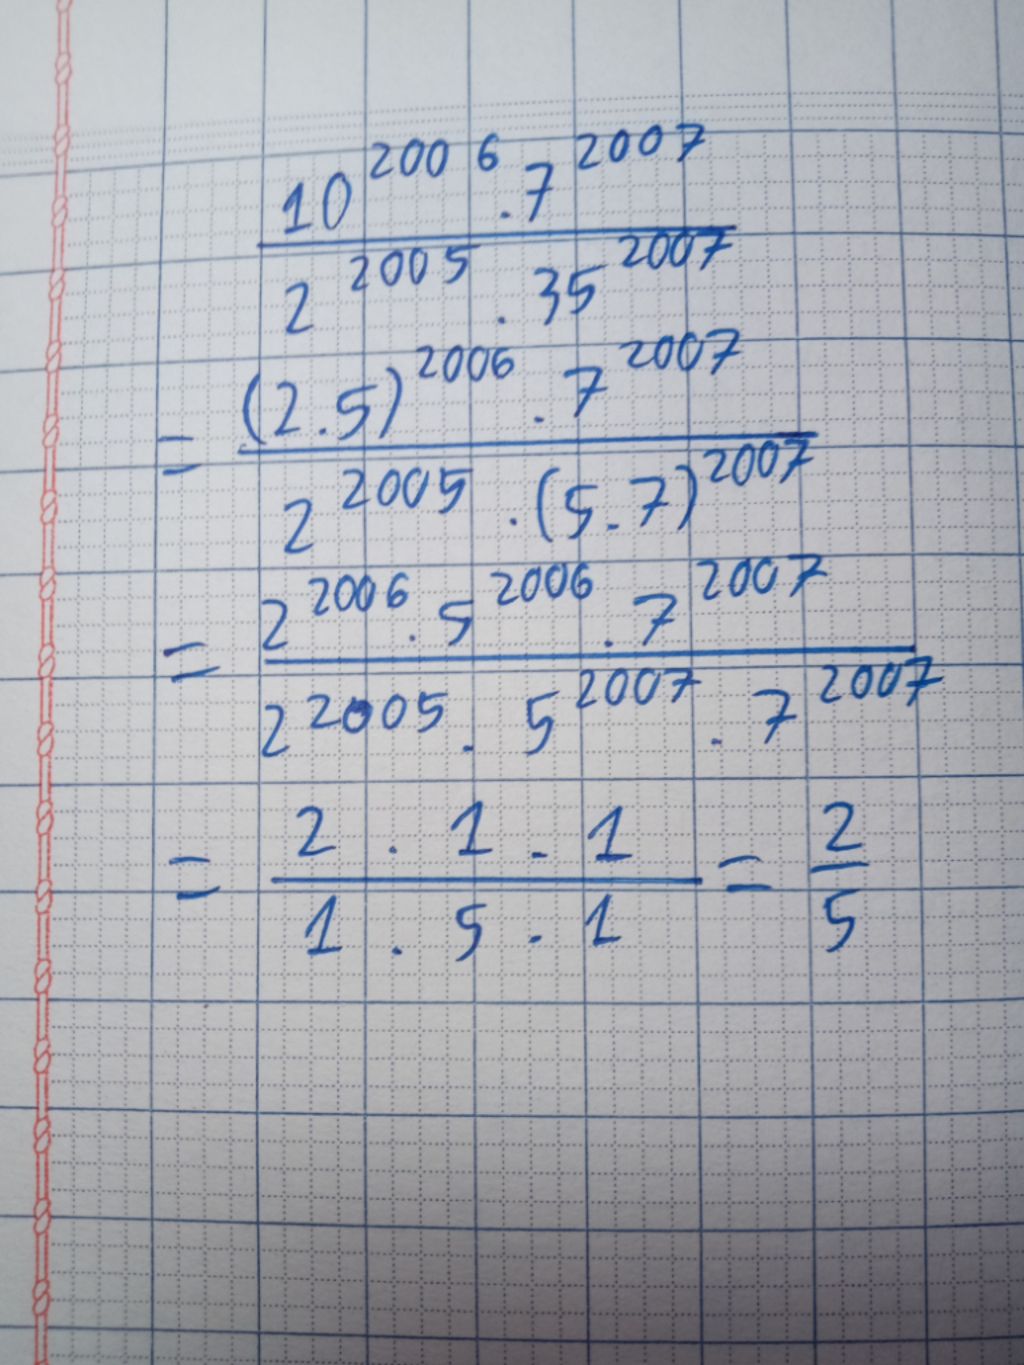 10^2006 . 7^2007
2^2005 . 35^2007
= (2.5)^2006 . 7^2007
2^2005 . (5.7)^2007
= 2^2006 . 5^2006 . 7^2007
2^2005 . 5^2007 . 7^2007
= 2 . 1 . 1 = 2
1 . 5 . 1 5